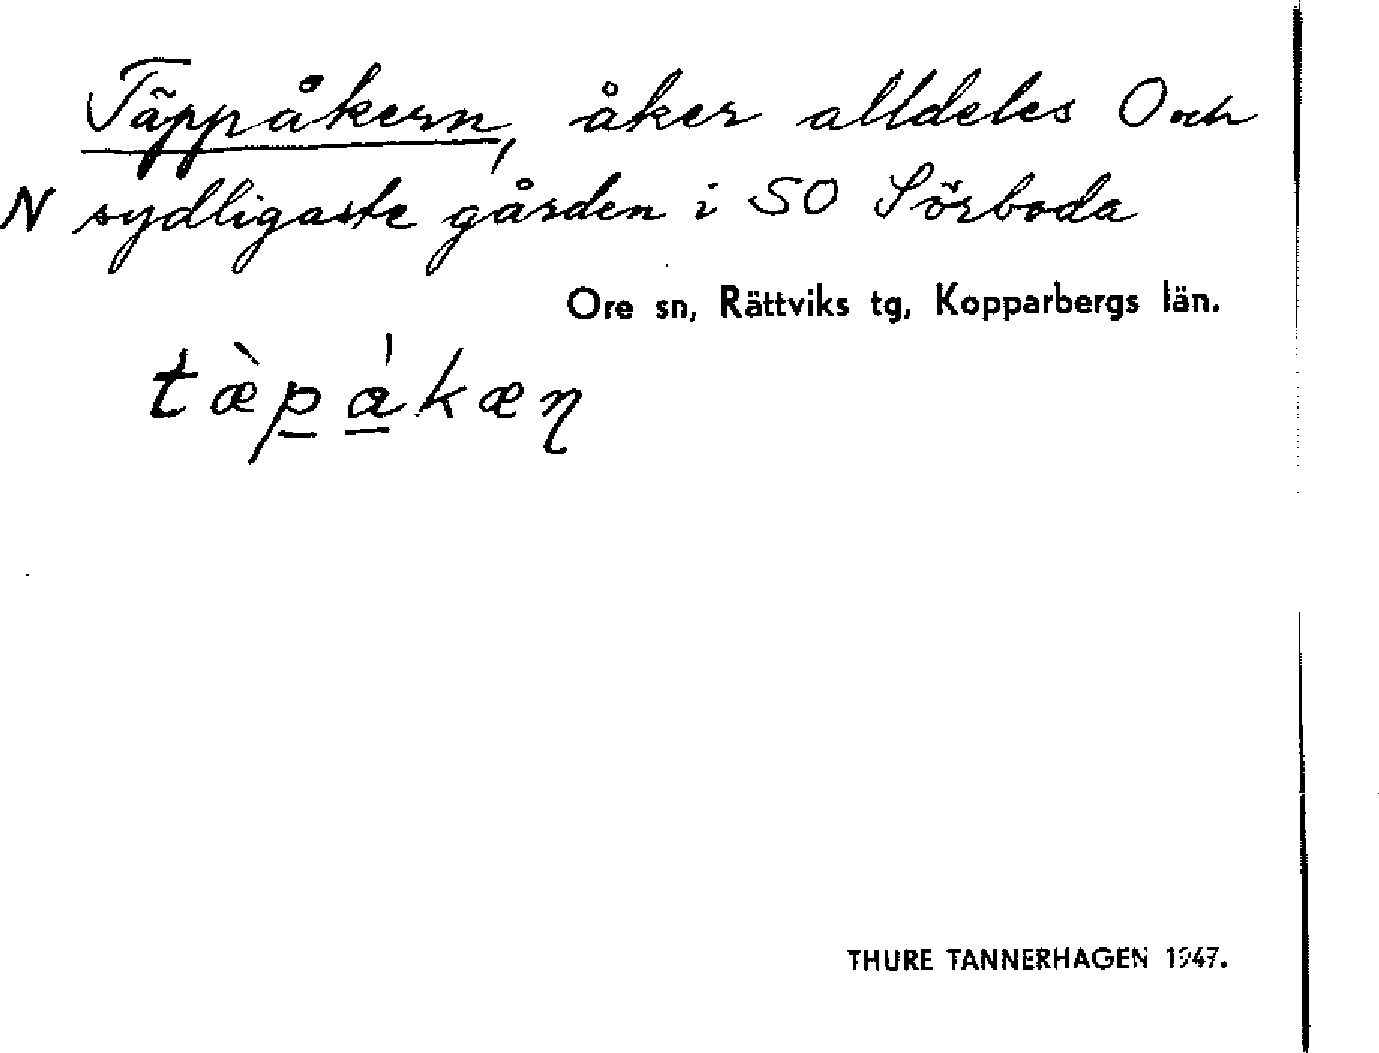 Täppåkern, åker alldeles O och
N sydligaste gården i SO Sörboda
Ore sn, Rättviks tg, Kopparbergs län.
tæ̀p̲a̲̍kæɳ
THURE TANNERHAGEN 1947.